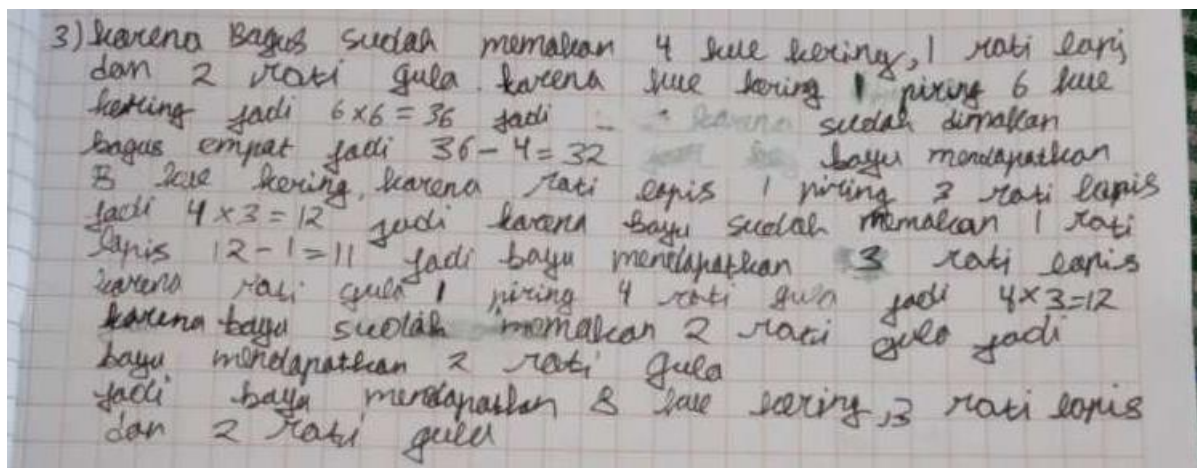 3) karena Bagus sudah memakan 4 kue kering, 1 roti lapis
dan 2 roti gula. karena kue kering 1 piring 6 kue
kering jadi 6×6=36 jadi sudah dimakan
bagus empat jadi 36-4=32 bayu mendapatkan
8 kue kering, karena roti lapis 1 piring 3 roti lapis
jadi 4×3=12 jadi karena bayu sudah memakan 1 roti
lapis 12-1=11 jadi bayu mendapatkan 3 roti lapis
karena roti gula 1 piring 4 roti gula jadi 4×3=12
karena bayu sudah memakan 2 roti gula jadi
bayu mendapatkan 2 roti gula
jadi bayu mendapatkan 8 kue kering, 3 roti lapis
dan 2 roti gula